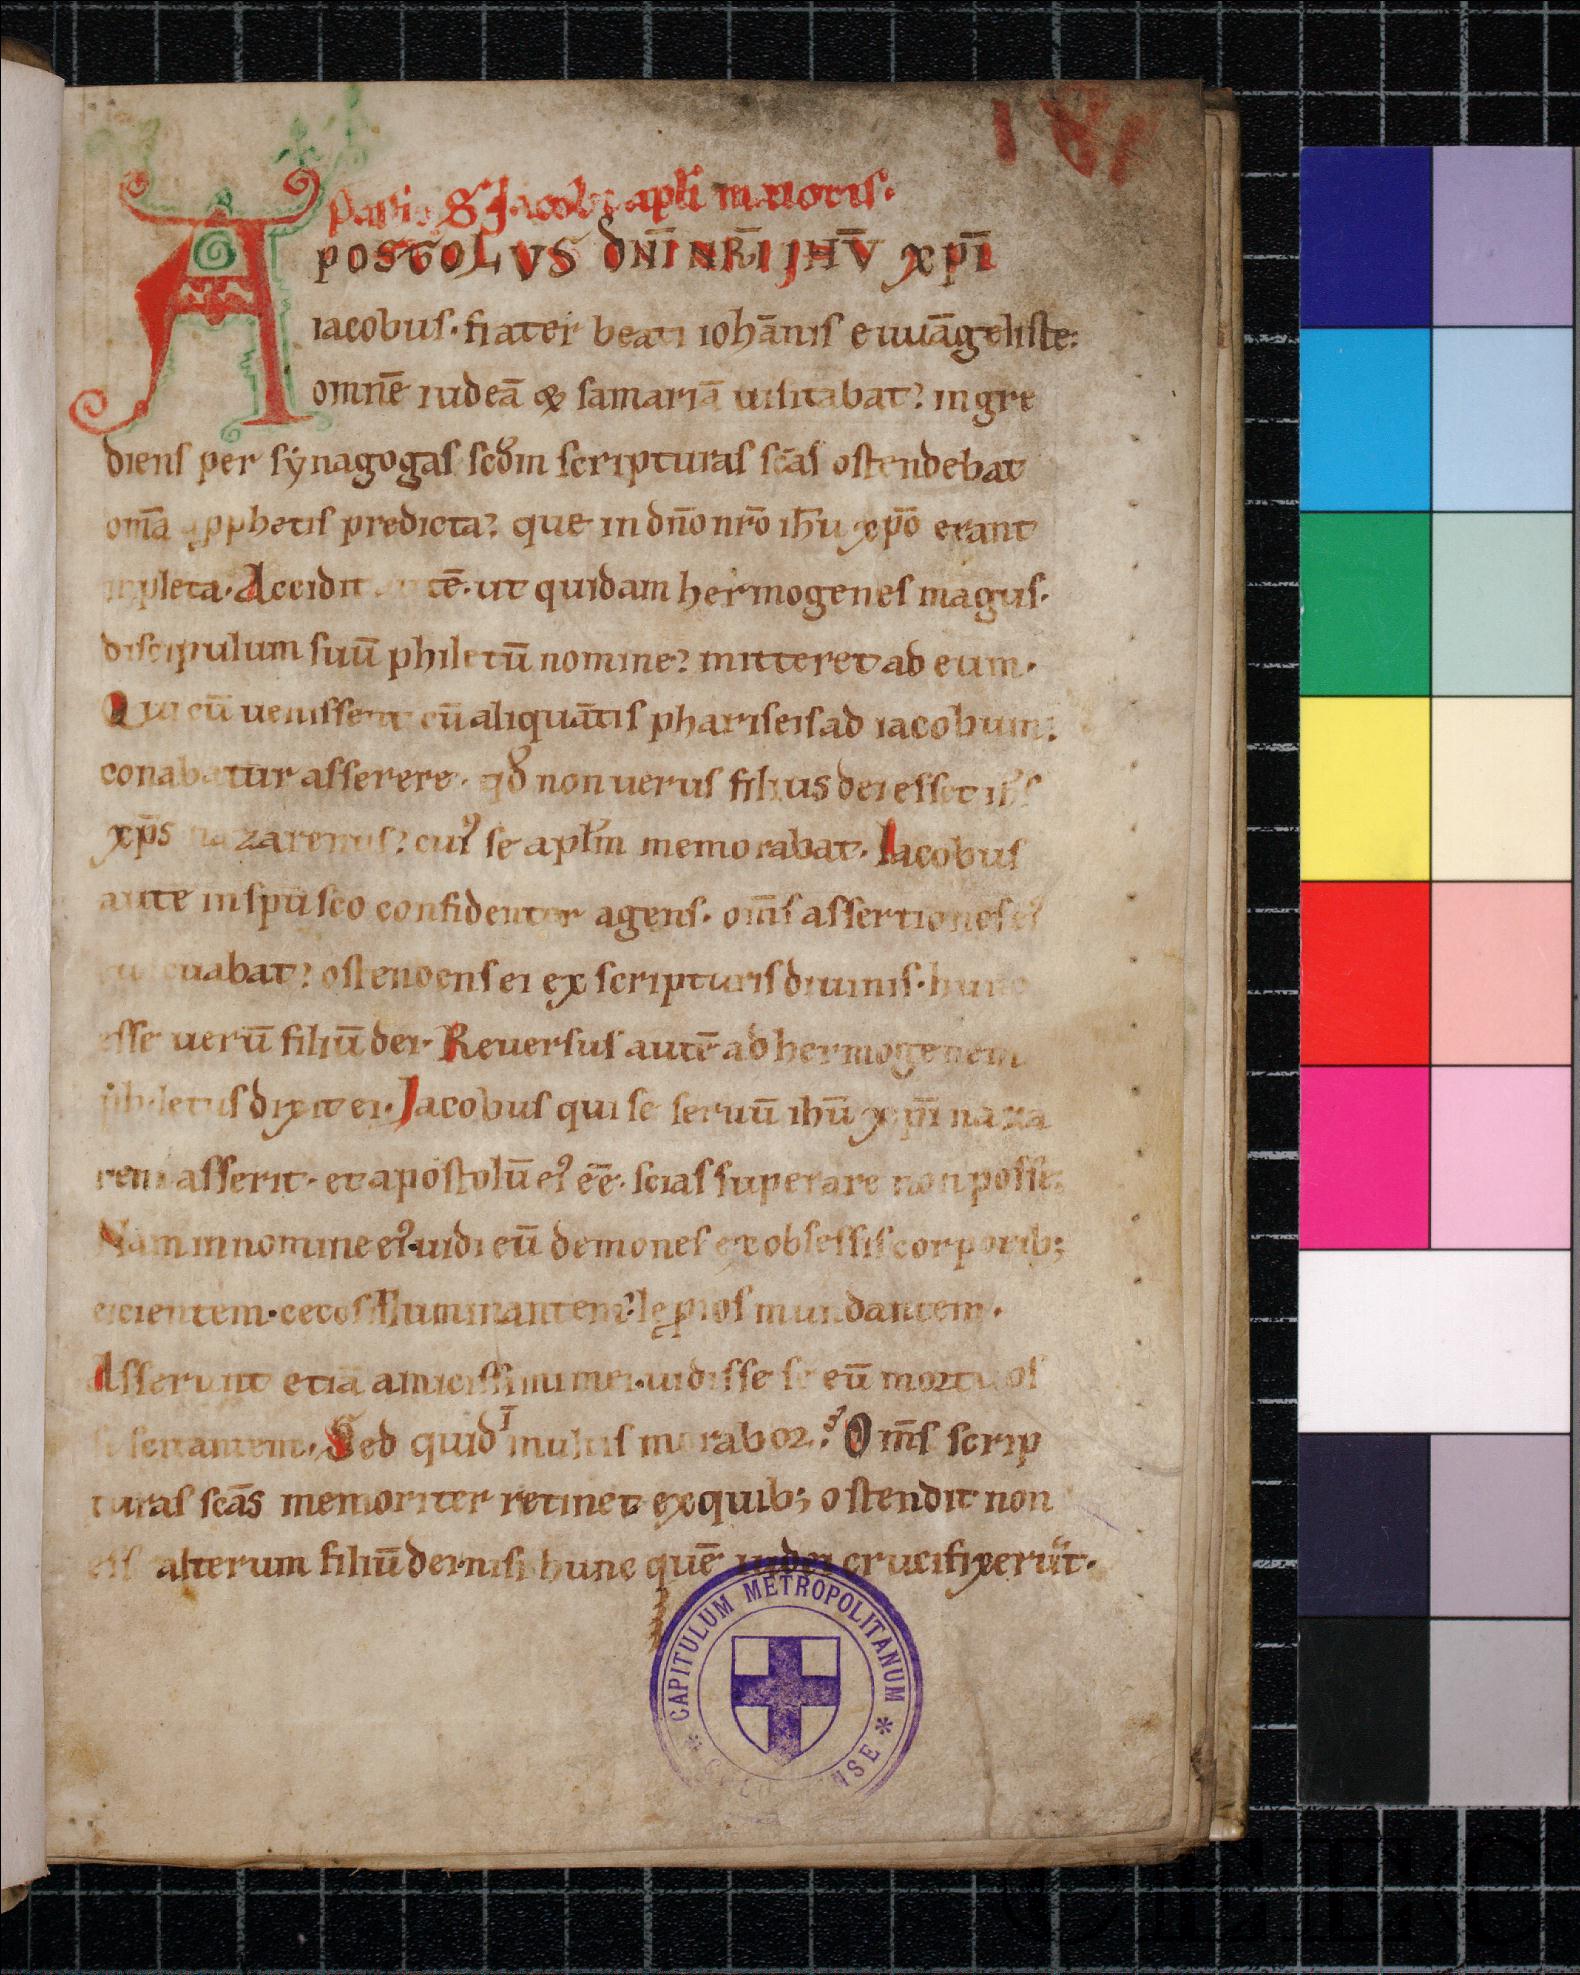 181
Passio S Jacobi apl̄i maioris.
APOSTOLVS DN̄I NR̄I JHV̄ xp̄i
iacobus· frater beati ioh̄anis euuāgeliste:
omnē iudeā & samariā uisitabat? ingre
diens per synagogas scd̄m scripturas sc̄as ostendebat
om̄a pphetis predicta? que in dn̄o nr̄o ih̄u xp̄o erant
inpleta. Accidit autē. ut quidam hermogenes magus.
discipulum suū philetū nomine? mitteret ad eum.
Qui cū uenissent cū aliquātis phariseis ad iacobum:
conabatur asserere. qd̄ non uerus filius dei esset ih̄s
xp̄s nazarenus? cui᾽ se apl̄m memorabat. Iacobus
autē in sp̄u sc̄o confidenter agens. om̄s assertiones ei᾽
euacuabat? ostendens ei ex scripturis diuinis. hunc
esse uerū filiū dei. Reuersus autē ad hermogenem
philetus dixit ei. Jacobus qui se seruū ihū xp̄i naza
reni asserit. et apostolū ei᾽ eē. scias superare non posse:
Nam in nomine ei᾽. uidi eū demones ex obsessis corporib;
eicientem. cecos illuminantem? lepros mundantem.
Asserunt etiā amicissimi mei. uidisse se eū mortuos
suscitantem. Sed quid ī multis morabor? Om̄s scrip
turas sc̄as memoriter retinet ex quib; ostendit non
esse alterum filiū dei nisi hunc quē iudei crucifixerūt.
CAPITULUM METROPOLITANUM